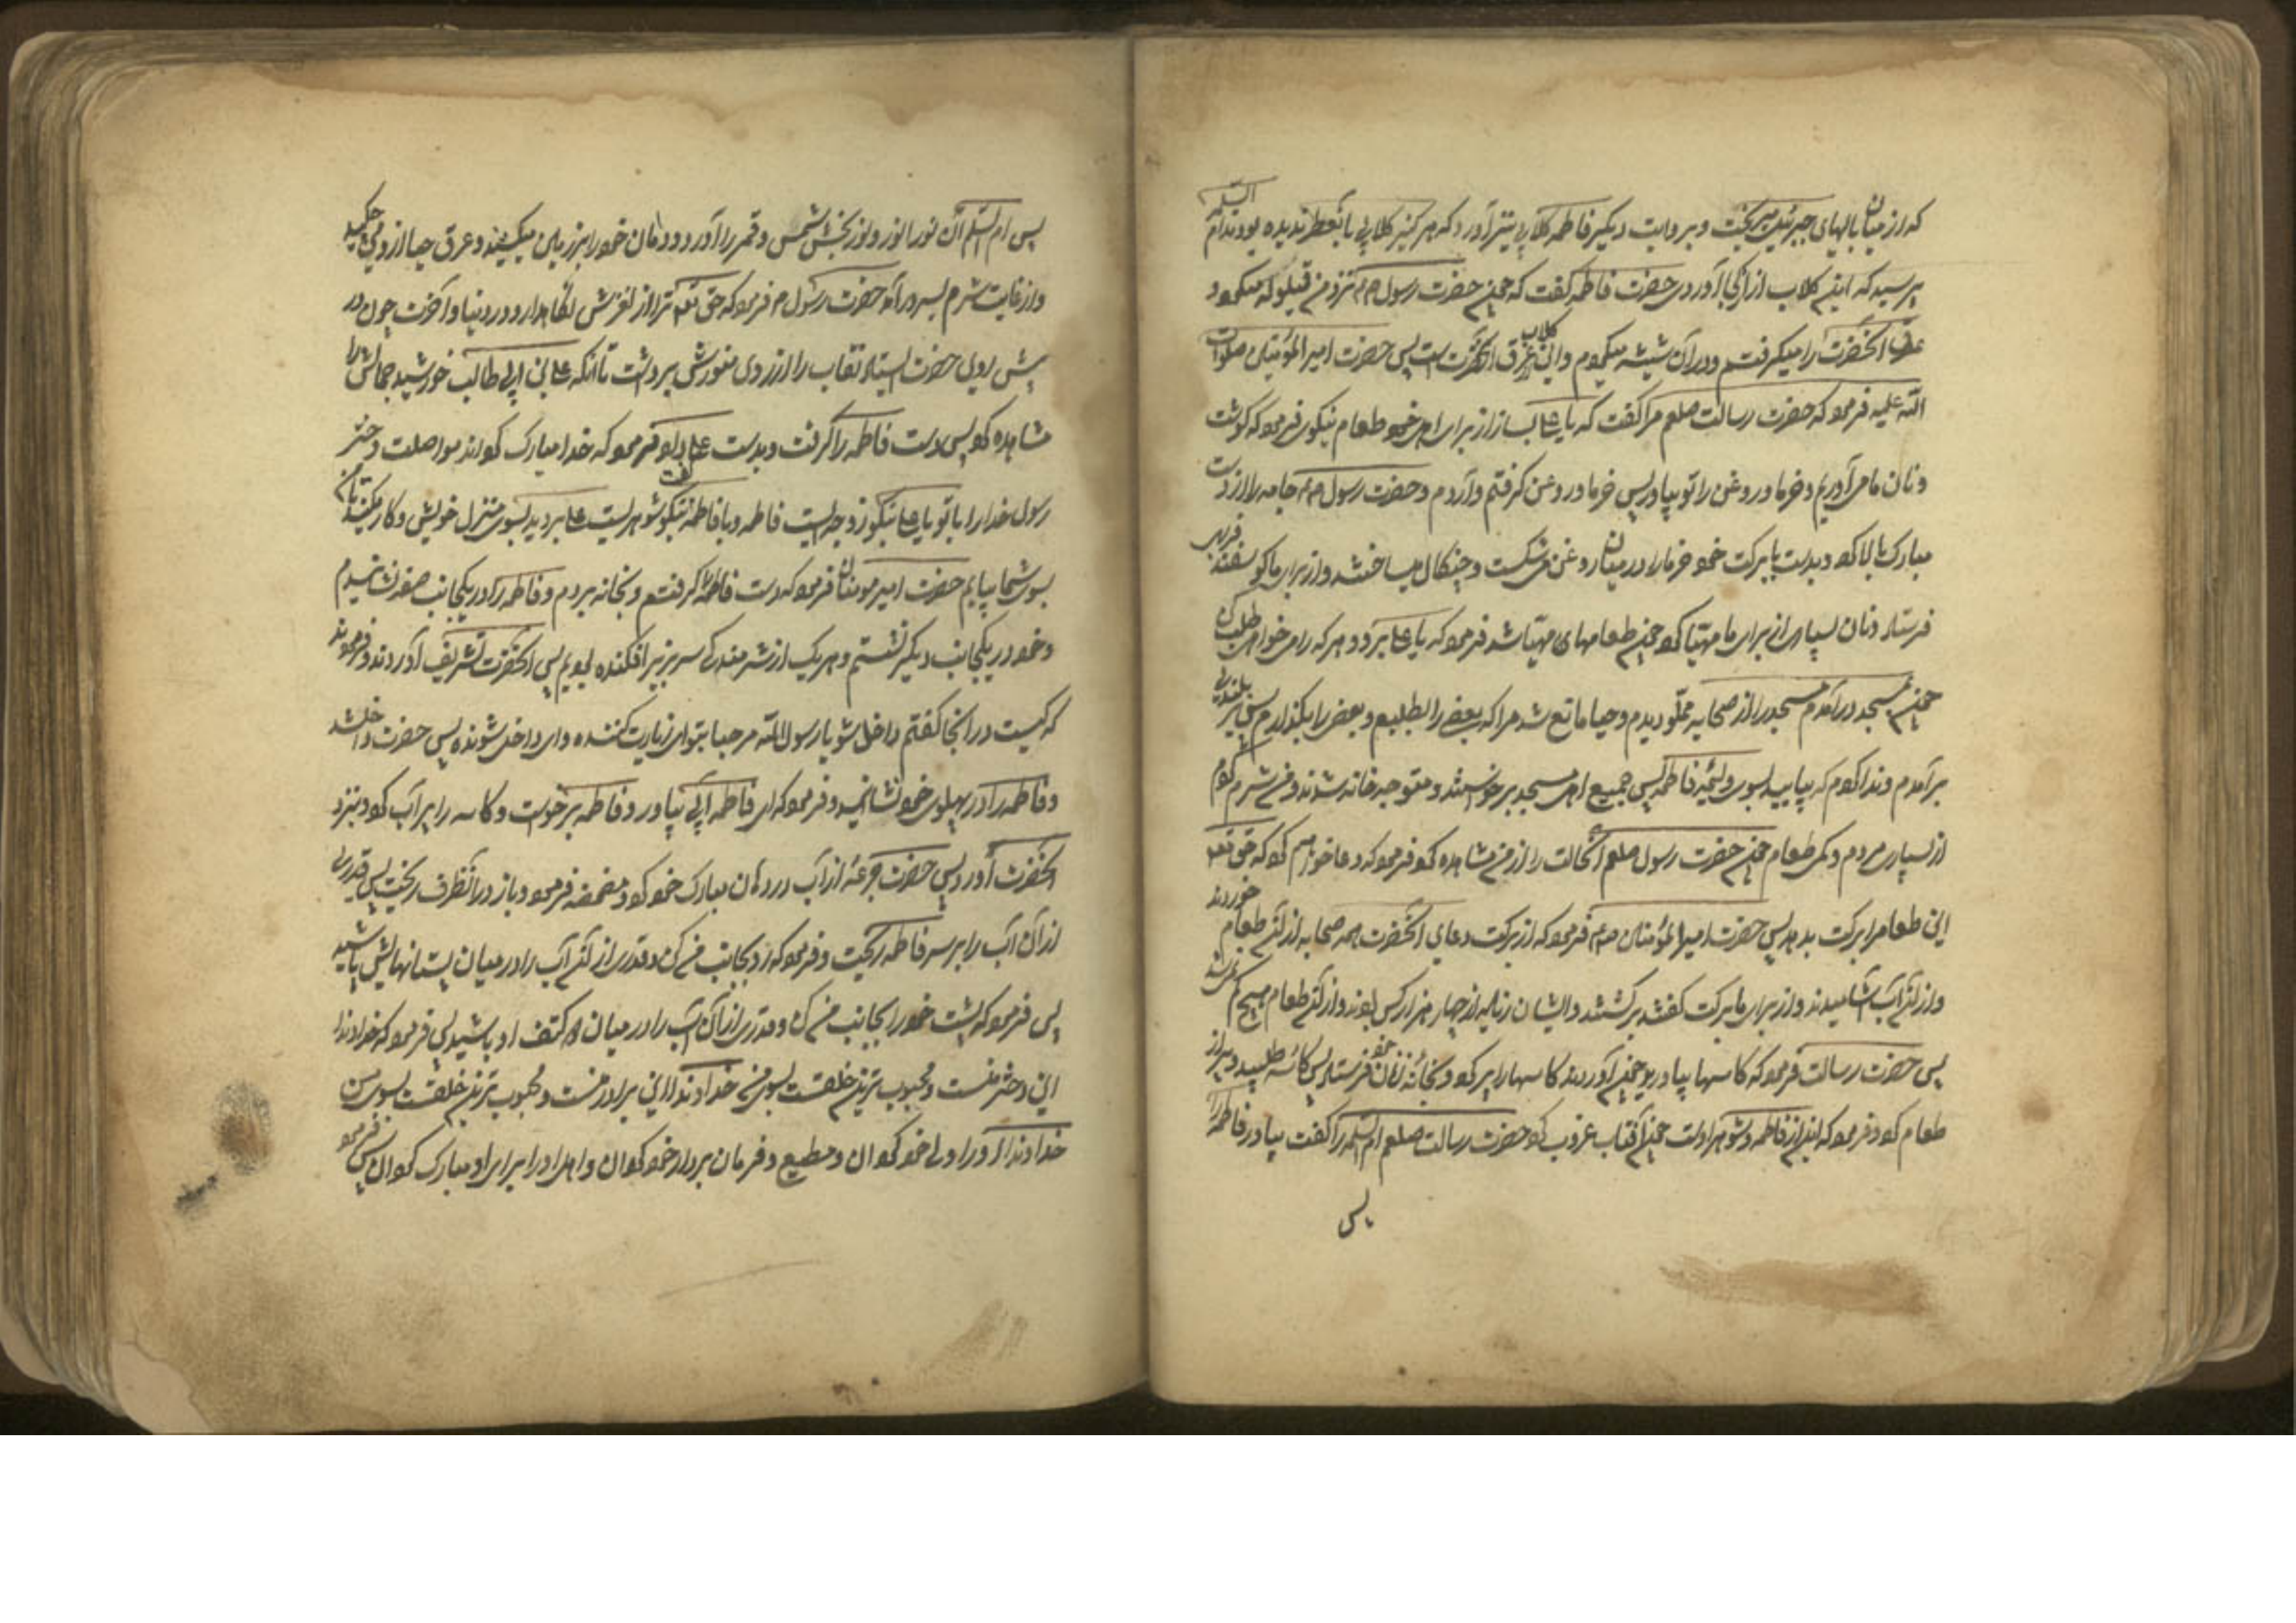 که از میان بالهای جبرئیل میریخت و بروایت دیگر فاطمه گلابی نیز آورد که هرگز گلابی بآنعطر ندیده بودند ام السلمه
پرسید که این گلاب از کجا آوردی حضرت فاطمه گفت که چون حضرت رسول ص م نزد من قیلوله میکرد
عرق آنحضرت را میگرفتم و در آن شیشه میکردم و این گلاب عرق آنحضرت است پس حضرت امیر المؤمنین صلوات
الله علیه فرمود که حضرت رسالت صلعم مرا گفت که یا علی بساز از برای اهل خود طعام نیکو پس فرمود که گوشت
و نان ما می آوریم و خرما و روغن را تو بیاور پس خرما و روغن گرفتم و آوردم و حضرت رسول ص م جامه را از دست
مبارک بالا کرد و بدست با برکت خود خرما را در میان روغن می شکست و چنگال میساختند و از برای ما گوسفند فربهی
فرستاد و نان بسیاری از برای ما مهیا کرد چون طعامهای مهیا شد فرمود که یا علی برو و هر که را می خواهی طلب کن
چون بمسجد در آمدم مسجد را از صحابه مملو دیدم و حیا مانع شد مرا که بعضی را بطلبم و بعضی را بگذارم پس بر بلندی
بر آمدم و ندا کردم که بیایید بسوی ولیمه فاطمه پس جمیع اهل مسجد برخواستند و متوجه خانه شدند و من شرم کردم
از بسیاری مردم و کمی طعام چون حضرت رسول صلعم آنحالت را از من مشاهده کرد فرمود که دعا خواهم کرد که حق تعه
این طعام را برکت بدهد پس حضرت امیر المؤمنان ص م فرمود که از برکت دعای آنحضرت همه صحابه از آن طعام خوردند
و از آن آب آشامیدند و از برای ما برکت گفتند برگشتند و ایشان زیاده از چهار هزار کس بودند و از آن طعام هیچ کم نشد
پس حضرت رسالت فرمود که کاسها بیاورید چون آوردند کاسها را پر کرد و بخانه زنان خود فرستاد پس کاسه طلبید و پر از
طعام کرد و فرمود که این از فاطمه و شوهر اوست چون آفتاب غروب کرد حضرت رسالت صلعم ام السلمه را گفت بیاور فاطمه را
پس
پس ام السلمه آن نور انور و نور بخش شمس و قمر را آورد و دامان خود را بر زمین میکشید و عرق حیا از روی می چکید
و از غایت شرم بسر در آمد حضرت رسول م فرمود که حق تعه ترا از لغزش نگاهدارد در دنیا و آخرت چون در
پش روی حضرت ایستاد نقاب را از روی منورش برداشت تا آنکه علی بن ابی طالب خورشید جمالش را
مشاهده کرد پس دست فاطمه را گرفت و بدست علی داد و فرمود که خدا مبارک گرداند مواصلت دختر
رسول خدا را با تو یا علی نیکو زوجه ایست فاطمه و یا فاطمه نیکو شوهریست علی بروید بسوی منزل خویش و کار مکنید تا من
بسوی شما بیایم حضرت امیر مومنان فرمود که دست فاطمه گرفتم و بخانه بردم و فاطمه را در یکجانب صفه نشانیدم
و خود در یکجانب دیگر نشستم و هر یک از شرمندگی سر بزیر افکنده بودیم پس آنحضرت تشریف آوردند و فرمودند
که کیست در اینجا گفتم داخل شو یا رسول الله مرحبا بتو ای زیارت کننده و ای داخل شونده پس حضرت داخل شد
و فاطمه را در پهلوی خود نشانید و فرمود که ای فاطمه آبی بیاور و فاطمه برخواست و کاسه را پر آب کرد و بنزد
آنحضرت آورد پس حضرت جرعه از آب در دهان مبارک خود کرد و مضمضه فرمود و باز در آنظرف ریخت پس قدری
از آن آب را بر سر فاطمه ریخت و فرمود که رو بجانب من کن و قدری از آن آب را در میان پستانهایش پاشید
پس فرمود که پشت خود را بجانب من کن و قدری از آن آب را در میان دو کتف او پاشید پس فرمود که خداوندا
این دختر منست و محبوب ترین خلقست بسوی من خداوندا این برادر منست و محبوب ترین خلقست بسوی من
خداوندا او را ولی خود گردان و مطیع و فرمان بردار خود گردان و اهل او را برای او مبارک گردان پس فرمود